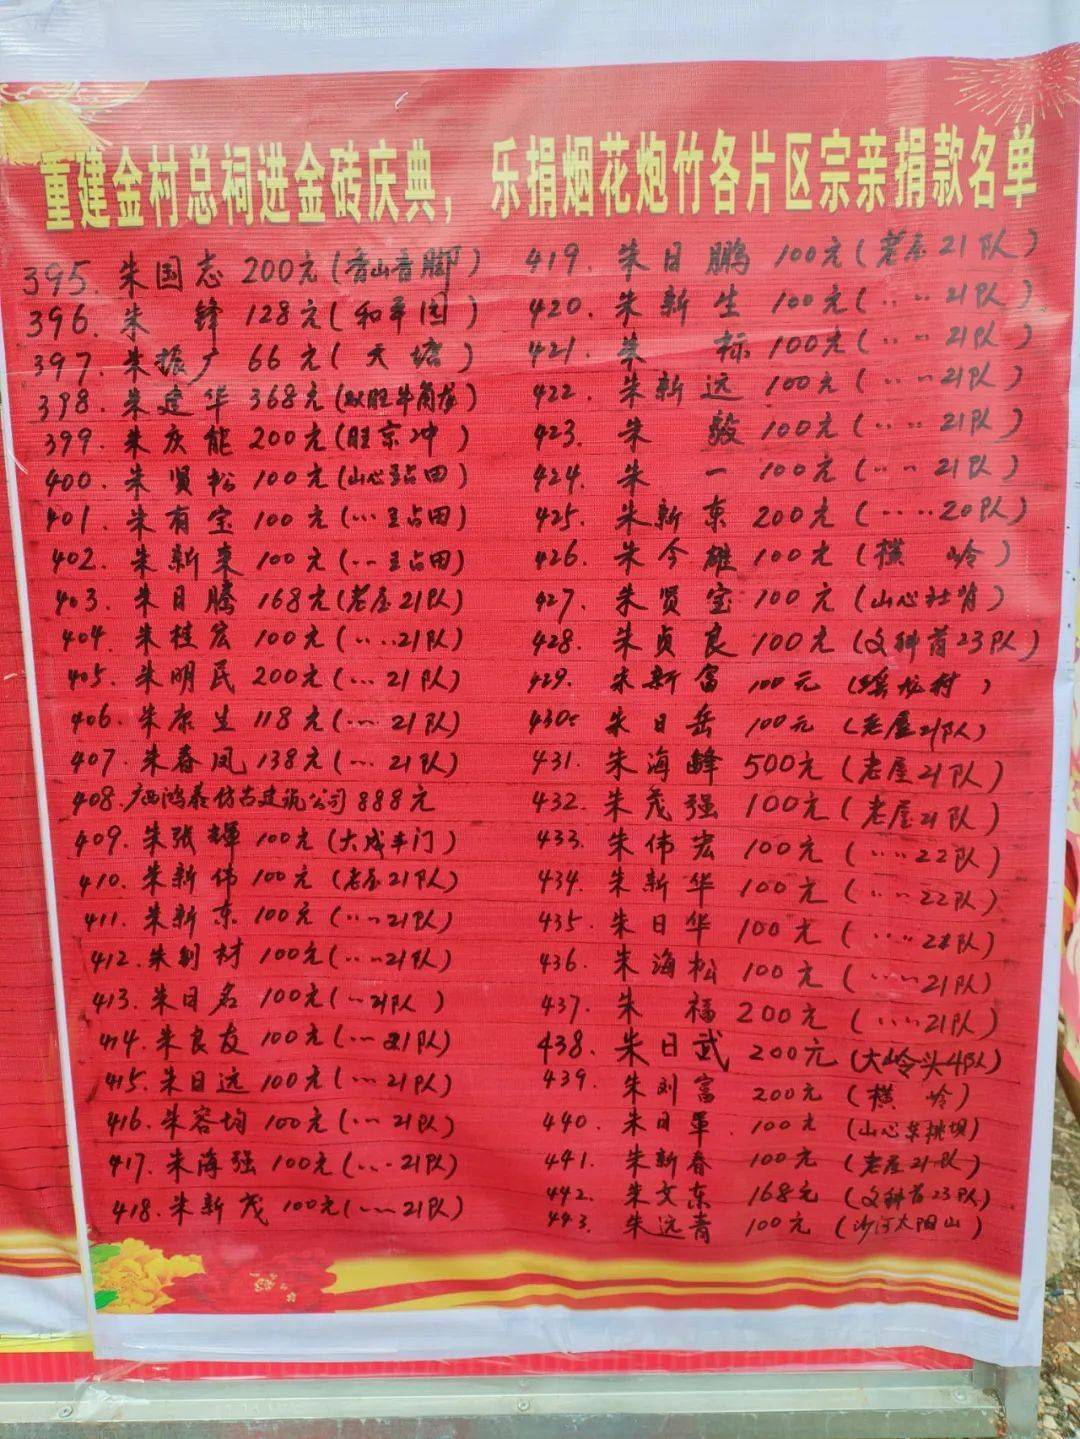 重建金村总祠进金砖庆典，乐捐烟花炮竹各片区宗亲捐款名单
395. 朱国志 200元(香山香脚)
396. 朱 锋 128元(和平园)
397. 朱振广 66元(天塘)
398. 朱建华 368元(双旺牛角龙)
399. 朱庆能 200元(旺京冲)
400. 朱贤松 100元(山心圭占田)
401. 朱有宝 100元(...圭占田)
402. 朱新来 100元(...圭占田)
403. 朱日腾 168元(老屋21队)
404. 朱桂宏 100元(.....21队)
405. 朱明民 200元(...21队)
406. 朱康生 118元(...21队)
407. 朱春凤 138元(...21队)
408. 广西鸿泰仿古建筑公司 888元
409. 朱张辉 100元(大成车门)
410. 朱新伟 100元(老屋21队)
411. 朱新东 100元(....21队)
412. 朱制材 100元(....21队)
413. 朱日名 100元(...21队)
414. 朱良友 100元(...21队)
415. 朱日远 100元(...21队)
416. 朱容均 100元(....21队)
417. 朱海强 100元(....21队)
418. 朱新茂 100元(....21队)
419. 朱日鹏 100元(老屋21队)
420. 朱新生 100元(.. ..21队)
421. 朱 标 100元(.. ..21队)
422. 朱新远 100元(.. ..21队)
423. 朱 毅 100元(.. ..21队)
424. 朱 一 100元(.. ..21队)
425. 朱新东 200元(.....20队)
426. 朱今雄 100元(横 岭)
427. 朱贤宝 100元(山心社背)
428. 朱贞良 100元(文科首23队)
429. 朱新富 100元(龙村)
430. 朱日岳 100元(老屋21队)
431. 朱海峰 500元(老屋21队)
432. 朱茂强 100元(老屋21队)
433. 朱伟宏 100元(....22队)
434. 朱新华 100元(....22队)
435. 朱日华 100元(....21队)
436. 朱海松 100元(....21队)
437. 朱 福 200元(....21队)
438. 朱日武 200元(大岭头4队)
439. 朱刘富 200元(横 岭)
440. 朱日军. 100元(山心桃坝)
441. 朱新春 100元(老屋21队)
442. 朱文东 168元(文科首23队)
443. 朱远青 100元(沙河太阳山)